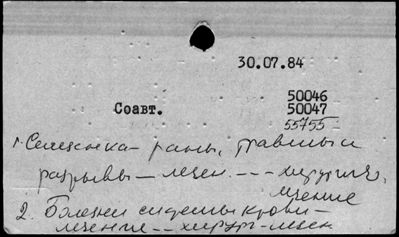 30.07.84
50046
Соавт. 50047
55755
1. Селезенка - раны, травмы и
разрывы - лечен. --- хирургич.
лечение
2. Болезни системы крови -
лечение -- хирург. лечен